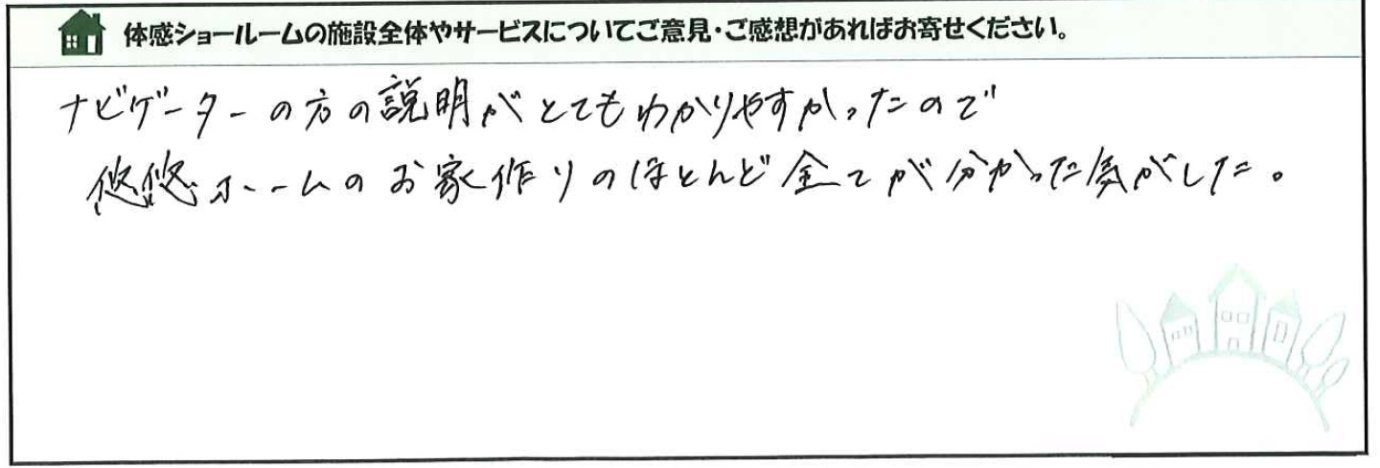 体感ショールームの施設全体やサービスについてご意見・ご感想があればお寄せください。
ナビゲーターの方の説明がとてもわかりやすかったので
悠悠ホームのお家作りのほとんど全てが分かった気がした。